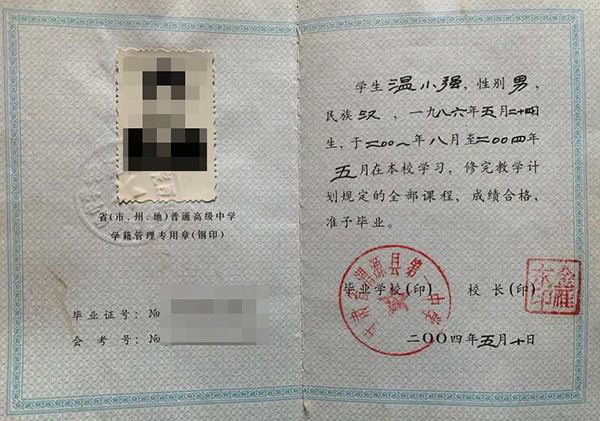 省(市、州、地)普通高级中学
学籍管理专用章(钢印)
毕业证号：No
会考号：No
学生温小强，性别男，
民族汉，一九八六年五月二十四日
生，于二〇〇一年八月至二〇〇四年
五月在本校学习，修完教学计
划规定的全部课程，成绩合格，
准予毕业。
毕业学校(印) 校长(印)
甘肃省渭源县第一中学
二〇〇四年五月十日